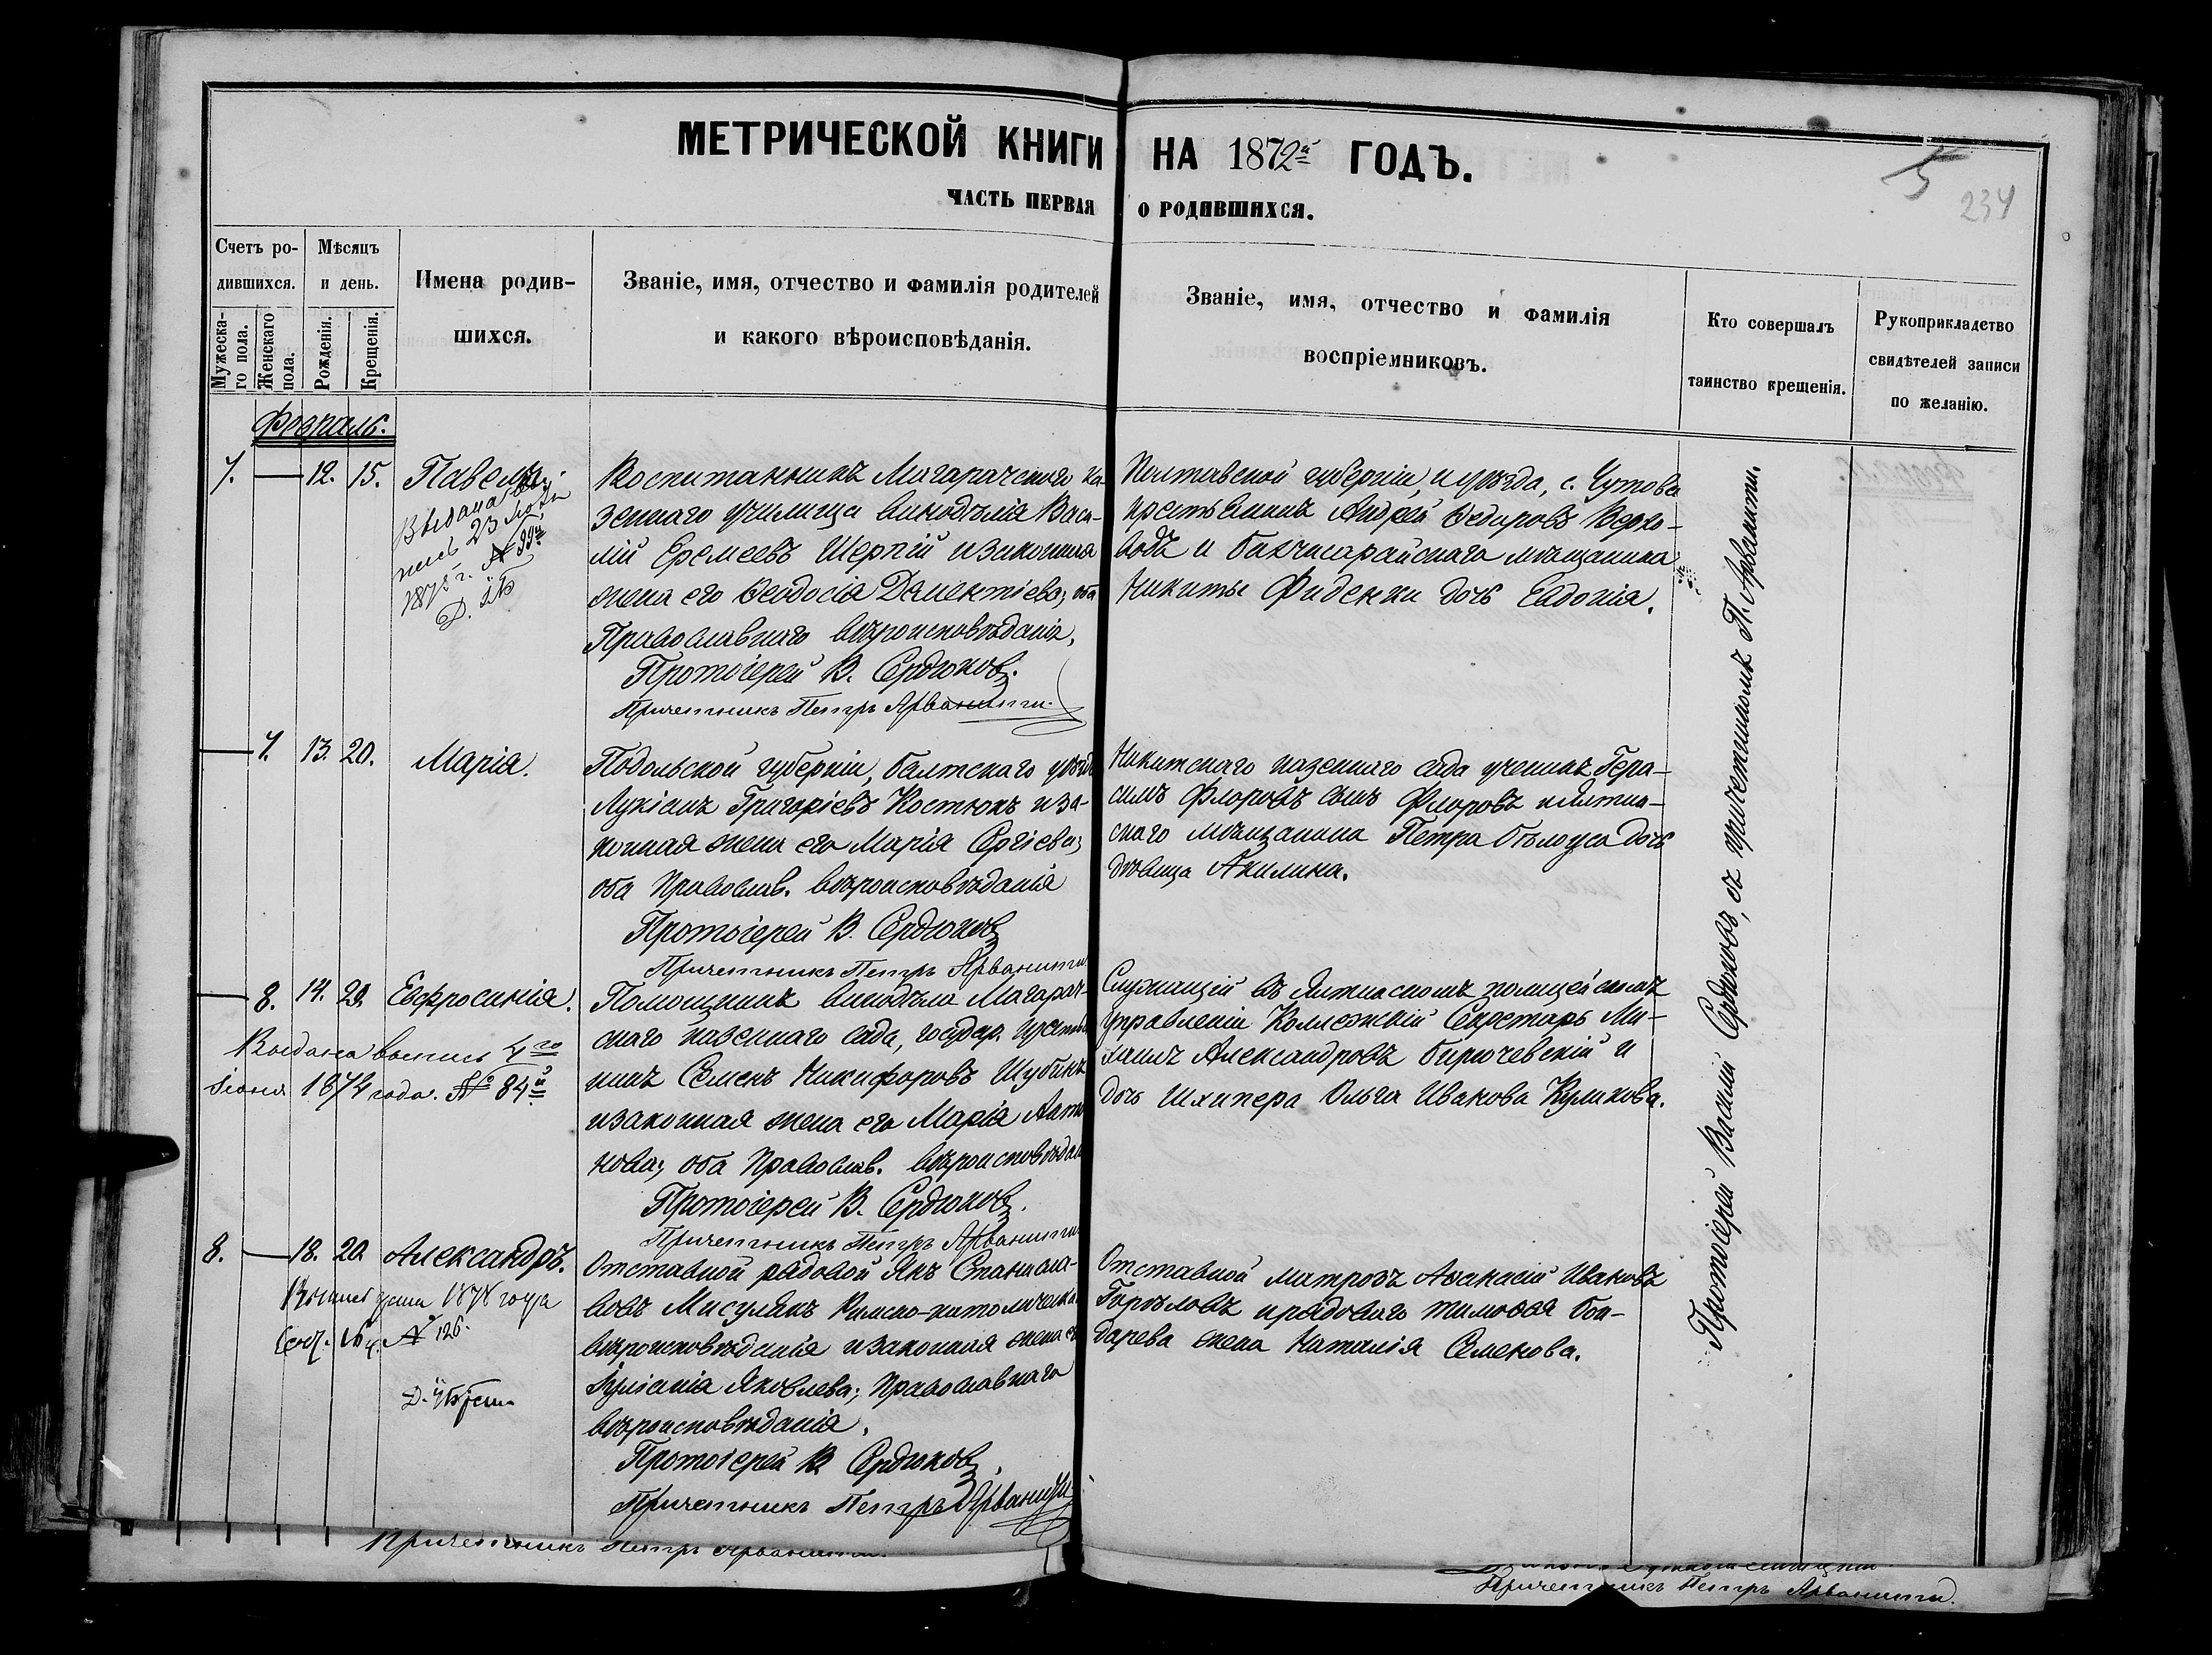 МЕТРИЧЕСКОЙ КНИГИ НА 1872й ГОДЪ.
5
234
ЧАСТЬ ПЕРВАЯ О РОДИВШИХСЯ.
Счетъ ро-
дившихся.
Мужеска-
го пола.
Женскаго
пола.
Мѣсяцъ
и день.
Рожденія.
Крещенія.
Имена родив-
шихся.
Званіе, имя, отчество и фамилія родителей
и какого вѣроисповѣданія.
Званіе, имя, отчество и фамилія
воспріемниковъ.
Кто совершалъ
таинство крещенія.
Рукоприкладство
свидѣтелей записи
по желанію.
Февраль.
7. — 12. 15. Павелъ.
Выдана вы-
пись 23
187 г. № 99й
Воспитанникъ Магарачскаго ка-
зеннаго училища винодѣлія Васи-
лій Еремеевъ Шерпій и законная
жена его Ѳеодосія Дементіева; оба
Православнаго вѣроисповѣданія.
Протоіерей В. Сердюковъ.
Причетникъ Петръ Арванити.
Полтавской губерніи, и уѣзда, с. Чутова
крестьянинъ Андрей Ѳедоровъ Верхо-
водъ и бахчисарайскаго мѣщанина
Никиты Фиденки дочь Евдокія.
— 7. 13. 20. Марія.
Подольской губерніи, балтскаго уѣзда
Лукіанъ Григоріевъ Костюкъ и за-
конная жена его Марія Сергіева;
оба Православ. вѣроисповѣданія
Протоіерей В. Сердюковъ
Причетникъ Петръ Арванити.
Никитскаго казеннаго сада ученикъ Гера-
симъ Флоровъ сынъ Флоровъ и Ялтин-
скаго мѣщанина Петра Бѣлоуса дочь
дѣвица Акилина.
— 8. 14. 20. Евфросинія.
Выдана выпись 4го
Іюня 1874 года. № 84й
Помощникъ винодѣла Магарач-
скаго казеннаго сада, государ. крестья
нинъ Семенъ Никифоровъ Шубинъ
и законная жена его Марія Анто
нова; оба Православ. вѣроисповѣдан
Протоіерей В. Сердюковъ.
Причетникъ Петръ Арванити.
Служащій въ Ялтинскомъ полицейскомъ
управленіи Коллежскій Секретарь Ми-
хаилъ Александровъ Бирючевскій и
дочь Шкипера Ольга Иванова Куликова.
8. — 18. 20. Александръ.
1878 года
№ 126.
Отставной рядовой Янъ Станисла-
вовъ Мисулякъ Римско-католическа
вѣроисповѣданія и законная жена ег
Іуліанія Яковлева; Православнаго
вѣроисповѣданія.
Протоіерей В. Сердюковъ.
Причетникъ Петръ Арванити
Отставной матрозъ Аѳанасій Ивановъ
Горѣловъ и рядоваго Тимоѳея Бон-
дарева жена Наталія Семенова.
Протоіерей Василій Сердюковъ, съ причетникомъ П. Арванити.
Причетникъ Петръ Арванити.
Причетникъ Петръ Арванити.